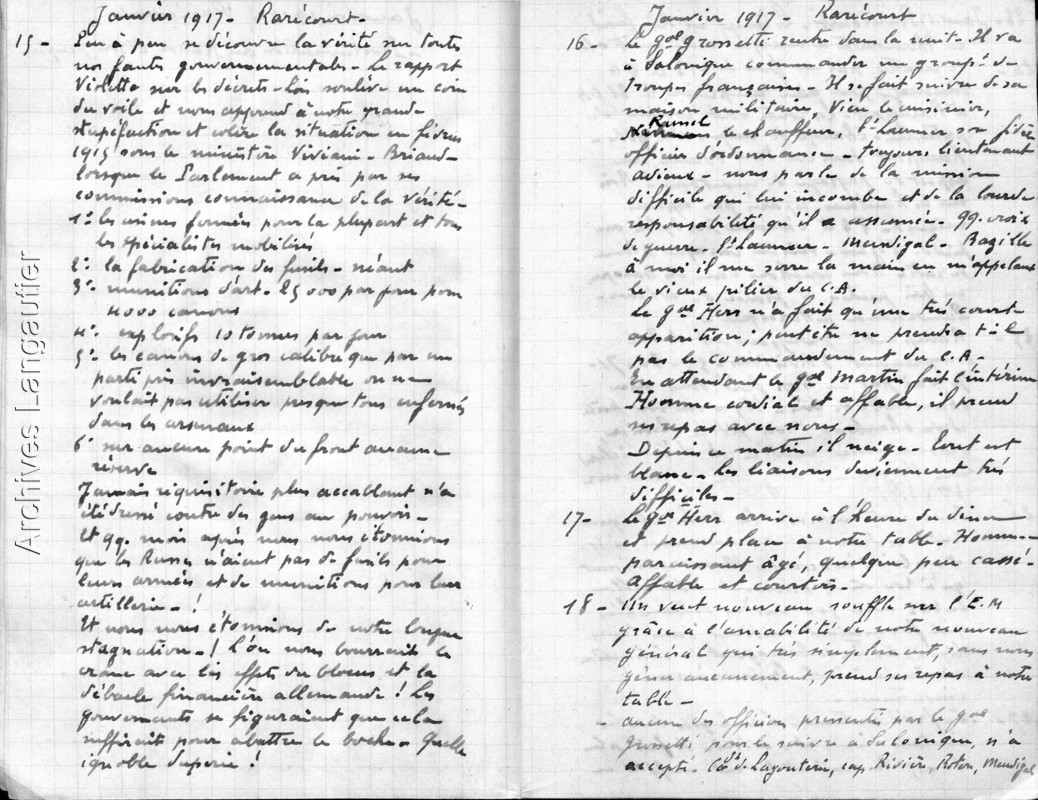 Janvier 1917 - Rarécourt -
15 - Peu à peu se découvre la vérité sur toutes
nos fautes gouvernementales - Le rapport
Violette sur les décrets-lois soulève un coin
du voile et nous apprend à notre grande
stupéfaction et colère la situation en février
1915 sous le ministère Viviani - Briand -
lorsque le Parlement a pris par ses
commissions connaissance de la vérité -
1° les usines fermées pour la plupart et tous
les spécialistes mobilisés
2° la fabrication des fusils - néant
3° munitions d'art - 25 000 par jour pour
4000 canons
4° explosifs 10 tonnes par jour
5° les canons de gros calibre que par un
parti pris invraisemblable on ne
voulait pas utiliser presque tous enfermés
dans les arsenaux
6° sur aucun point du front aucune
réserve
Jamais réquisitoire plus accablant n'a
été dressé contre des gens au pouvoir -
Et qq. mois après nous nous étonnions
que les Russes n'aient pas de fusils pour
leurs armées et de munitions pour leur
artillerie - !
Et nous nous étonnions de notre longue
stagnation - ! L'on nous bourrait le
crâne avec les effets du blocus et la
débacle financière allemande ! Les
gouvernants se figuraient que cela
suffirait pour abattre le boche - Quelle
ignoble duperie !
Janvier 1917 - Rarécourt
16 - Le gal Grossetti rentre dans la nuit - Il va
à Salonique commander un groupt de
Troupes françaises - Il se fait suivre de sa
maison militaire, le cuisinier,
Ramel
le chauffeur, St Launier son fidèle
officier d'ordonnance - toujours lieutenant
adieux - nous parle de la mission
difficile qui lui incombe et de la lourde
responsabilité qu'il a assumée - qq. croix
de guerre - St Launier - Mendigal - Bazille
à moi il me serre la main en m'appelant
le vieux pilier du C.A.
Le gal Herr n'a fait qu'une très courte
apparition ; peut être ne prendra t-il
pas le commandement du C.A -
En attendant le gal Martin fait l'intérim
Homme cordial et affable, il prend
ses repas avec nous -
Depuis ce matin il neige - Tout est
blanc - Les liaisons deviennent très
difficiles -
17 - Le gal Herr arrive à l'heure du diner
et prend place à notre table. Homme
paraissant âgé, quelque peu cassé -
Affable et courtois -
18 - Un vent nouveau souffle sur l'E.M
grâce à l'amabilité de notre nouveau
général qui très simplement, sans nous
gêner aucunement, prend ses repas à notre
table -
- aucun des officiers pressentis par le gal
Grossetti pour le suivre à Salonique, n'a
accepté - Cdt de Lagouterie, cap. Rivière, Roton, Mendigal
Archives Langautier